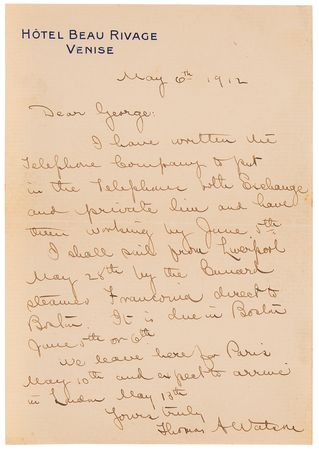 HÔTEL BEAU RIVAGE
VENISE
May 6th 1912
Dear George:
I have written the
Telephone Company to put
in the Telephones both Exchange
and private line and have
them working by June 5th.
I shall sail from Liverpool
May 28th by the Cunard
steamer Franconia direct to
Boston. It is due in Boston
June 5th or 6th
We leave here for Paris
May 10th and expect to arrive
in London May 13th
Yours truly
Thomas A Watson